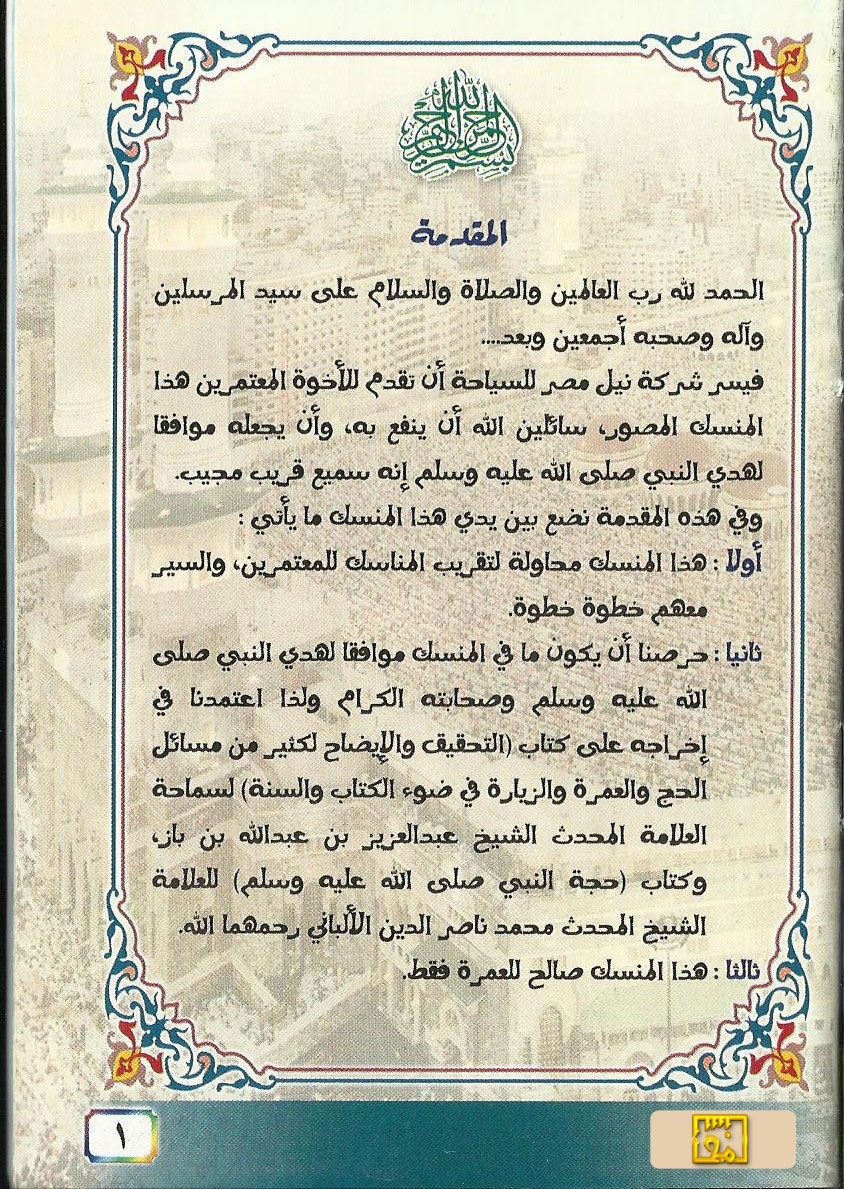 بسم الله الرحمن الرحيم
المقدمة
الحمد لله رب العالمين والصلاة والسلام على سيد المرسلين
وآله وصحبه أجمعين وبعد....
فيسر شركة نيل مصر للسياحة أن تقدم للأخوة المعتمرين هذا
المنسك المصور، سائلين الله أن ينفع به، وأن يجعله موافقا
لهدي النبي صلى الله عليه وسلم إنه سميع قريب مجيب.
وفي هذه المقدمة نضع بين يدي هذا المنسك ما يأتي :
أولا : هذا المنسك محاولة لتقريب المناسك للمعتمرين، والسير
معهم خطوة خطوة.
ثانيا : حرصنا أن يكون ما في المنسك موافقا لهدي النبي صلى
الله عليه وسلم وصحابته الكرام ولذا اعتمدنا في
إخراجه على كتاب (التحقيق والإيضاح لكثير من مسائل
الحج والعمرة والزيارة في ضوء الكتاب والسنة) لسماحة
العلامة المحدث الشيخ عبدالعزيز بن عبدالله بن باز،
وكتاب (حجة النبي صلى الله عليه وسلم) للعلامة
الشيخ المحدث محمد ناصر الدين الألباني رحمهما الله.
ثالثا : هذا المنسك صالح للعمرة فقط.
١